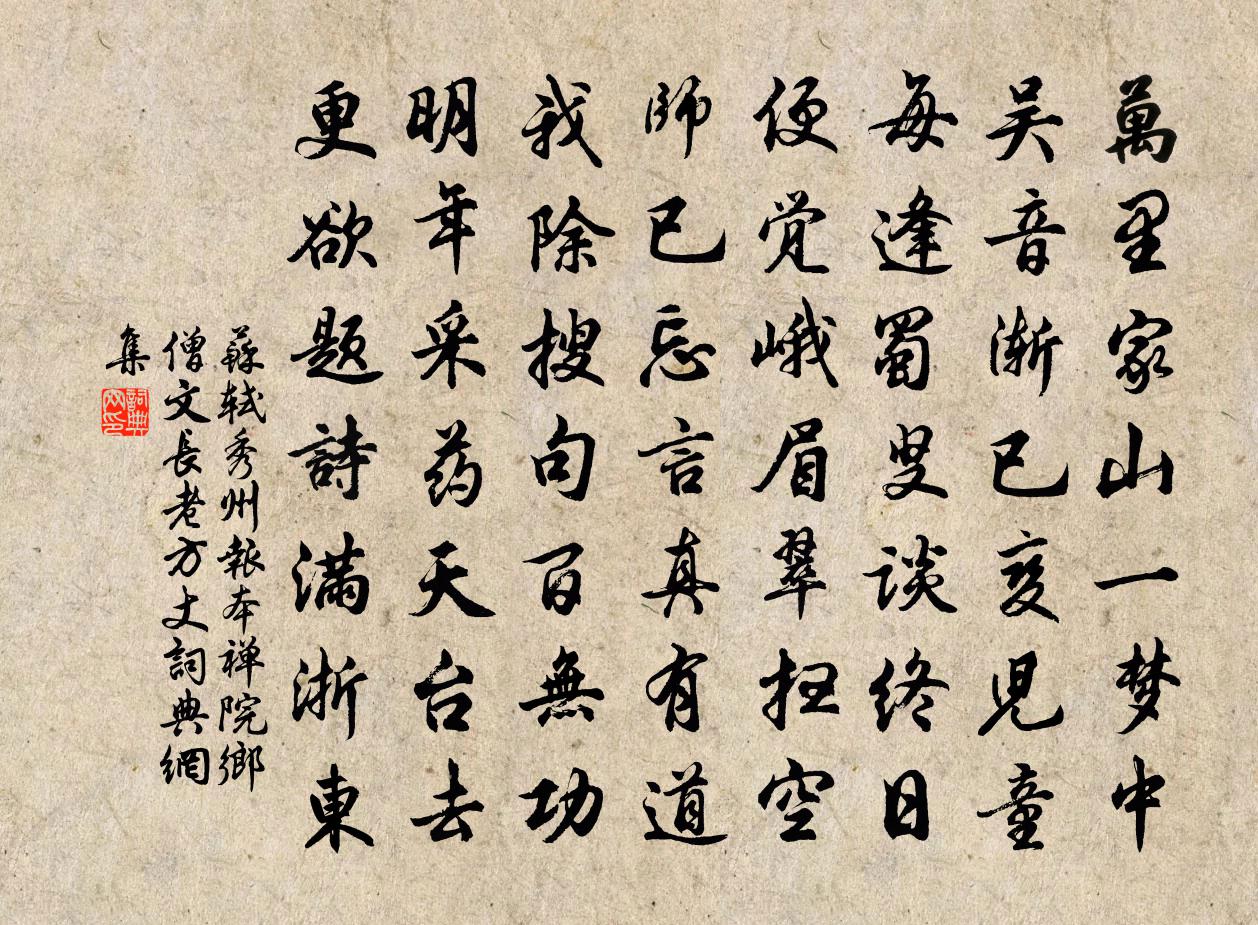 萬里家山一梦中
吴音渐已变児童
每逢蜀叟谈终日
便觉峨眉翠扫空
師已忘言真有道
我除搜句百無功
明年采药天台去
更欲题詩满浙東
蘇轼秀州報本禅院鄉
僧文長老方丈詞典網
集
詞典網印